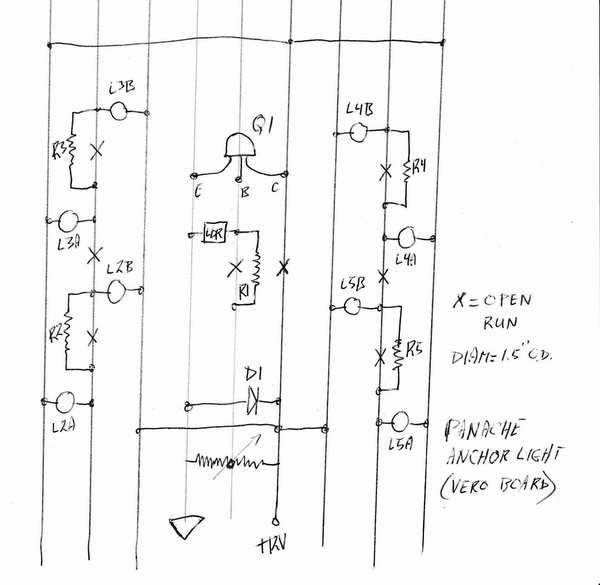 L3B
Q1
L4B
R3
R4
E
B
C
LDR
L3A
L4A
L2B
R1
L5B
X = OPEN
RUN
R2
R5
DIAM = 1.5" O.D.
D1
L2A
L5A
PANACHE
ANCHOR LIGHT
(VERO BOARD)
+12V